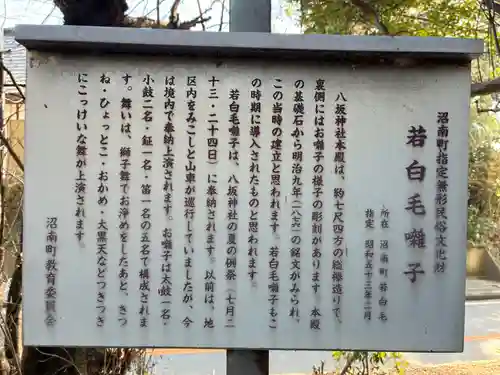 沼南町指定無形民俗文化財
若白毛囃子
所在 沼南町若白毛
指定 昭和五十三年二月
八坂神社本殿は、約七尺四方の総欅造りで、
裏側にはお囃子の様子の彫刻があります。本殿
の基礎石から明治九年(一八七六)の銘文がみられ、
この当時の建立と思われます。若白毛囃子もこ
の時期に導入されたものと思われます。
若白毛囃子は、八坂神社の夏の例祭(七月二
十三・二十四日)に奉納されます。以前は、地
区内をみこしと山車が巡行していましたが、今
は境内で奉納上演されます。お囃子は太鼓一名・
小鼓二名・鉦一名・笛一名の五名で構成されま
す。舞いは、獅子舞でお浄めをしたあと、きつ
ね・ひょっとこ・おかめ・大黒天などつぎつぎ
にこっけいな舞が上演されます。
沼南町教育委員会